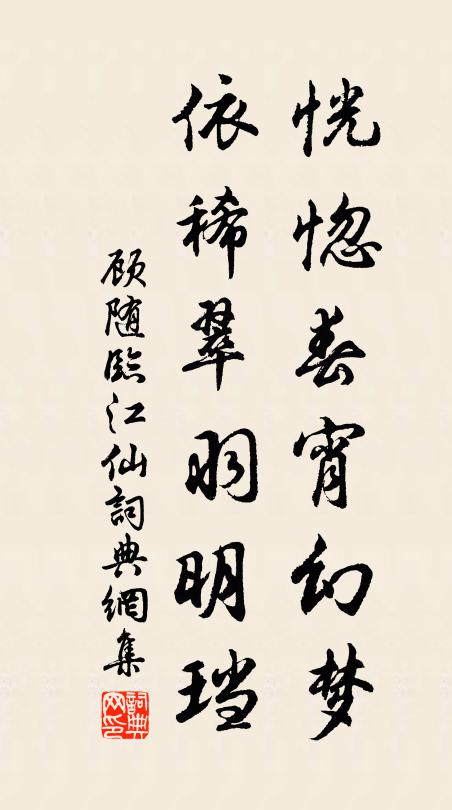 恍惚春宵幻梦
依稀翠羽明珰
顾随臨江仙詞典網集
詞典网印